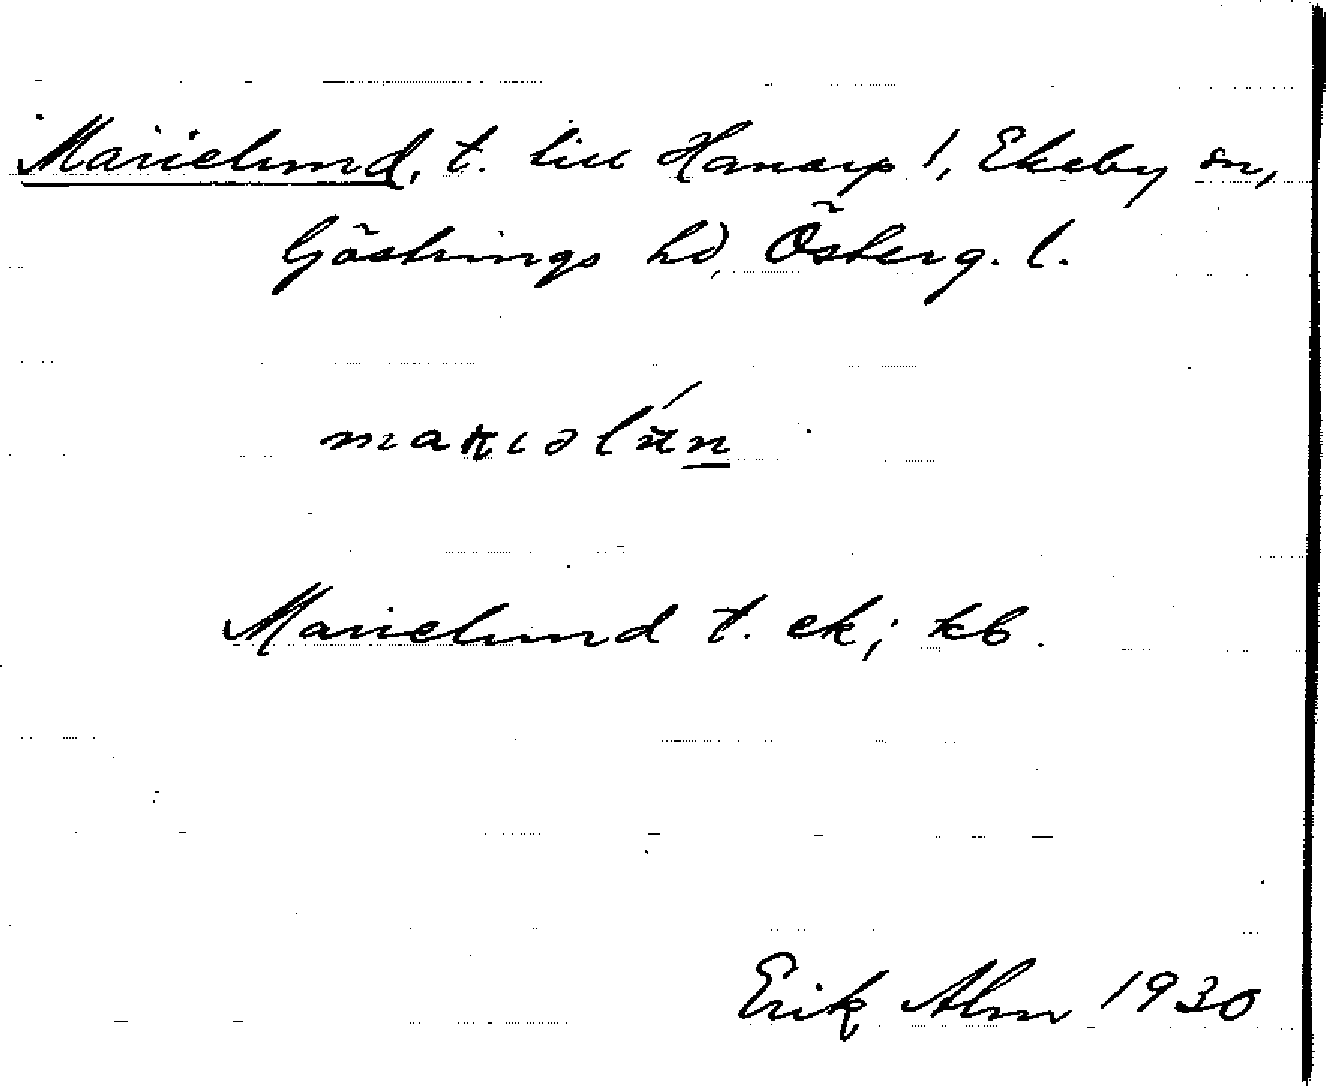 Marielund, t. till Hanarp 1, Ekeby sn,
Göstrings hd, Österg. l.
marıəlún
Marielund t. ek; kb.
Erik Alm 1930